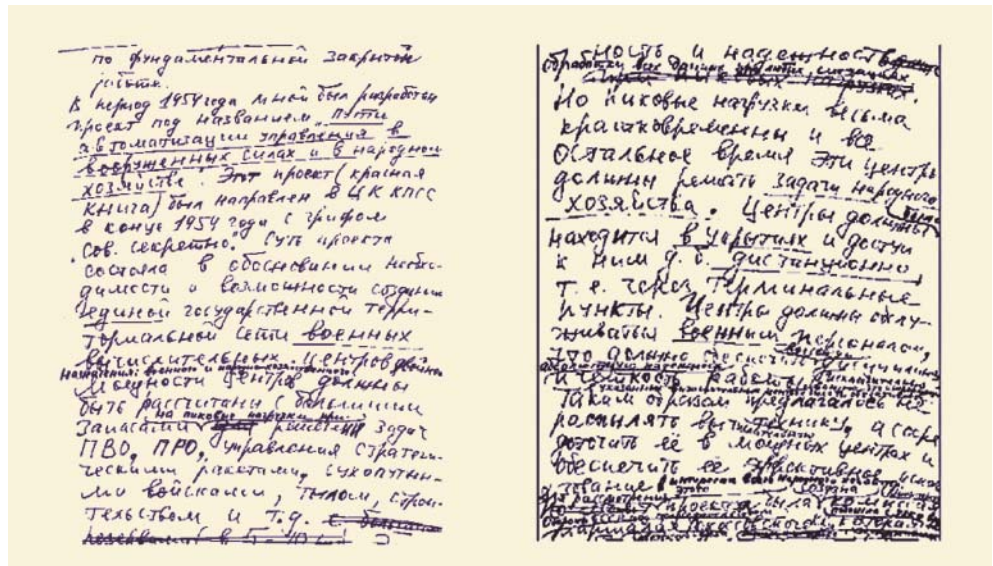 по фундаментальной закрытой
работе.
В период 1954 года мной был разработан
проект под названием „Пути
автоматизации управления в
вооруженных силах и в народном
хозяйстве". Этот проект (красная
книга) был направлен в ЦК КПСС
в конце 1954 года с грифом
„Сов. секретно". Суть проекта
состояла в обосновании необхо-
димости и возможности создания
единой государственной терри-
ториальной сети военных
вычислительных центров двойного
назначения: военного и народно-хозяйственного.
Мощности центров должны
быть рассчитаны с большими
на пиковые нагрузки при
запасами решении задач
ПВО, ПРО, управления стратеги-
ческими ракетами, сухопутны-
ми войсками, тылом, строи-
тельством и т.д.
ность и надежность
обработки всех данных при любых ситуациях
Но пиковые нагрузки весьма
кратковременны и все
остальное время эти центры
должны решать задачи народного
хозяйства. Центры должны
находится в укрытиях и доступ
к ним д.б. дистанционно,
т.е. через терминальные
пункты. Центры должны обслу-
живаться военным персоналом,
что должно обеспечить
и четкость работы
Таким образом предлагалось не
распылять выч. технику, а сосре
доточить её в мощных центрах и
обеспечить её эффективное исполь
зование в интересах всего народного хозяйства
этого создана
проекта была комиссия